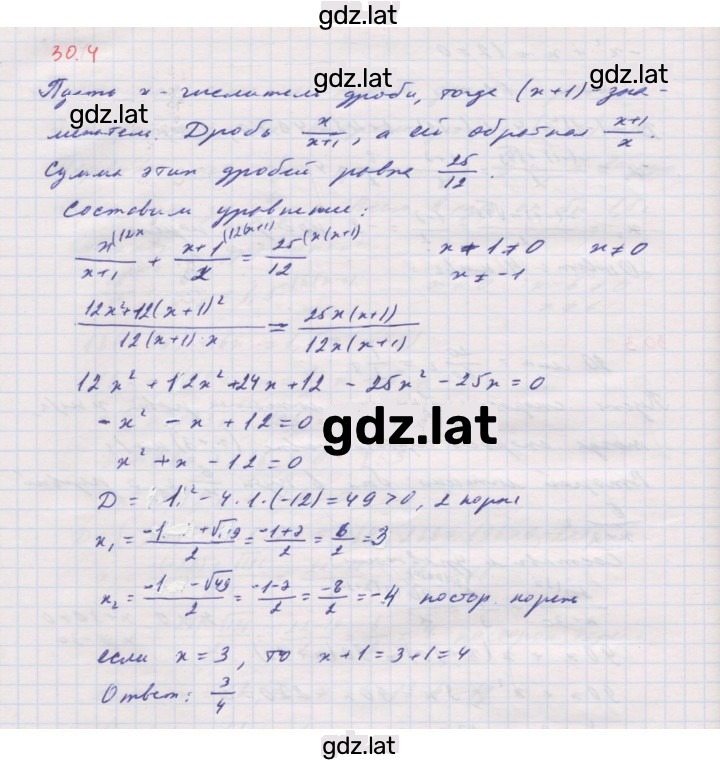 gdz.lat
30.4
gdz.lat
Пусть x - числитель дроби, тогда (x+1) - зна-
gdz.lat
менатель. Дробь x/(x+1), а ей обратная (x+1)/x.
Сумма этих дробей равна 25/12.
Составим уравнение:
x/(x+1) (12x + (x+1)/x (12(x+1) = 25/12 (x(x+1) x+1≠0 x≠0
x≠-1
(12x²+12(x+1)²)/(12(x+1)·x) = 25x(x+1)/(12x(x+1))
12x² + 12x² + 24x + 12 - 25x² - 25x = 0
-x² - x + 12 = 0
gdz.lat
x² + x - 12 = 0
D = 1² - 4·1·(-12) = 49 > 0, 2 корня
x₁ = (-1+√49)/2 = (-1+7)/2 = 6/2 = 3
x₂ = (-1-√49)/2 = (-1-7)/2 = -8/2 = -4 постор. корень
если x = 3, то x+1 = 3+1 = 4
Ответ: 3/4
gdz.lat